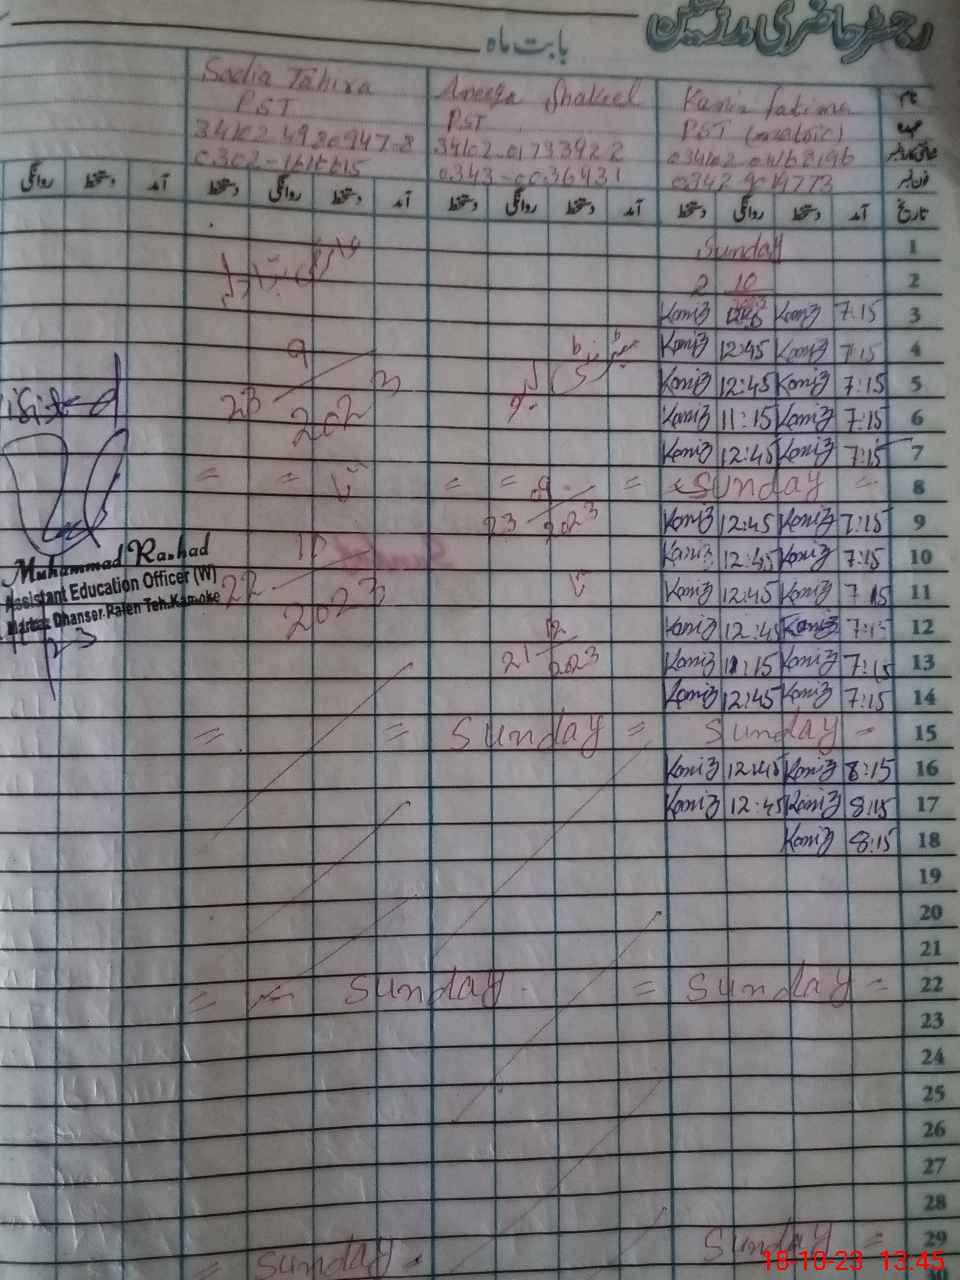 رجسٹر حاضری مدرسین
بابت ماہ
نام Kaniz Fatima Aneeqa Shakeel Sadia Tahira
عہدہ PST PST PST
شناختی کارڈ نمبر
فون نمبر
تاریخ آمد دستخط روانگی دستخط آمد دستخط روانگی دستخط آمد دستخط روانگی دستخط آمد دستخط روانگی
1 Sunday
2 2 10
3 7:15 Kaniz Kaniz
4 7:15 Kaniz 12:45 Kaniz
5 7:15 Kaniz 12:45 Kaniz
6 7:15 Kaniz 11:15 Kaniz
7 7:15 Kaniz 12:45 Kaniz
8 = Sunday = = = = =
9 7:15 Kaniz 12:45 Kaniz
10 7:15 Kaniz 12:45 Kaniz
11 7:15 Kaniz 12:45 Kaniz
12 7:15 Kaniz 12:45 Kaniz
13 7:15 Kaniz 11:15 Kaniz
14 7:15 Kaniz 12:45 Kaniz
15 = Sunday = Sunday = =
16 8:15 Kaniz 12:45 Kaniz
17 8:15 Kaniz 12:45 Kaniz
18 8:15 Kaniz
19
20
21
22 = Sunday = Sunday =
23
24
25
26
27
28
29 = Sunday = Sunday =
9
23 2023
9
23 2023
12
22 2023
12
21 2023
Visited
Muhammad Rashad
Assistant Education Officer (W)
Markaz Dhanser Paien Teh.Kamoke
18-10-23 13:45